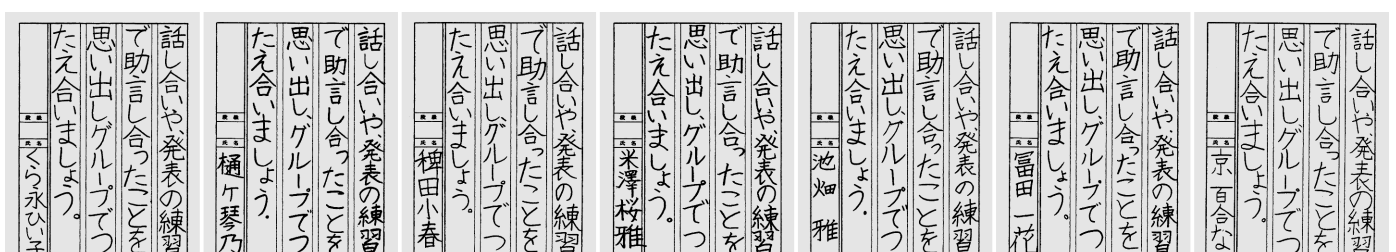 話し合いや、発表の練習
で助言し合ったことを
思い出し、グループでつ
たえ合いましょう。
段級
氏名
くら永ひい子
話し合いや、発表の練習
で助言し合ったことを
思い出し、グループでつ
たえ合いましょう。
段級
氏名
樋ヶ琴乃
話し合いや、発表の練習
で助言し合ったことを
思い出し、グループでつ
たえ合いましょう。
段級
氏名
稗田小春
話し合いや、発表の練習
で助言し合ったことを
思い出し、グループでつ
たえ合いましょう。
段級
氏名
米澤桜雅
話し合いや、発表の練習
で助言し合ったことを
思い出し、グループでつ
たえ合いましょう。
段級
氏名
池畑 雅
話し合いや、発表の練習
で助言し合ったことを
思い出し、グループでつ
たえ合いましょう。
段級
氏名
冨田一花
話し合いや、発表の練習
で助言し合ったことを
思い出し、グループでつ
たえ合いましょう。
段級
氏名
京 百合な